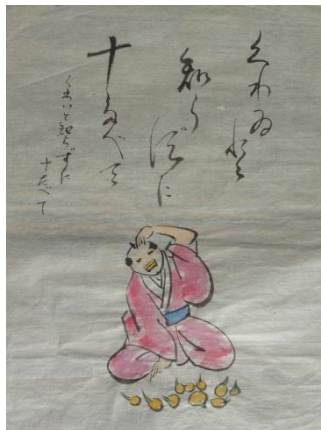 くわゐと
知らずに
十たべて
くわいと知らずに
十たべて